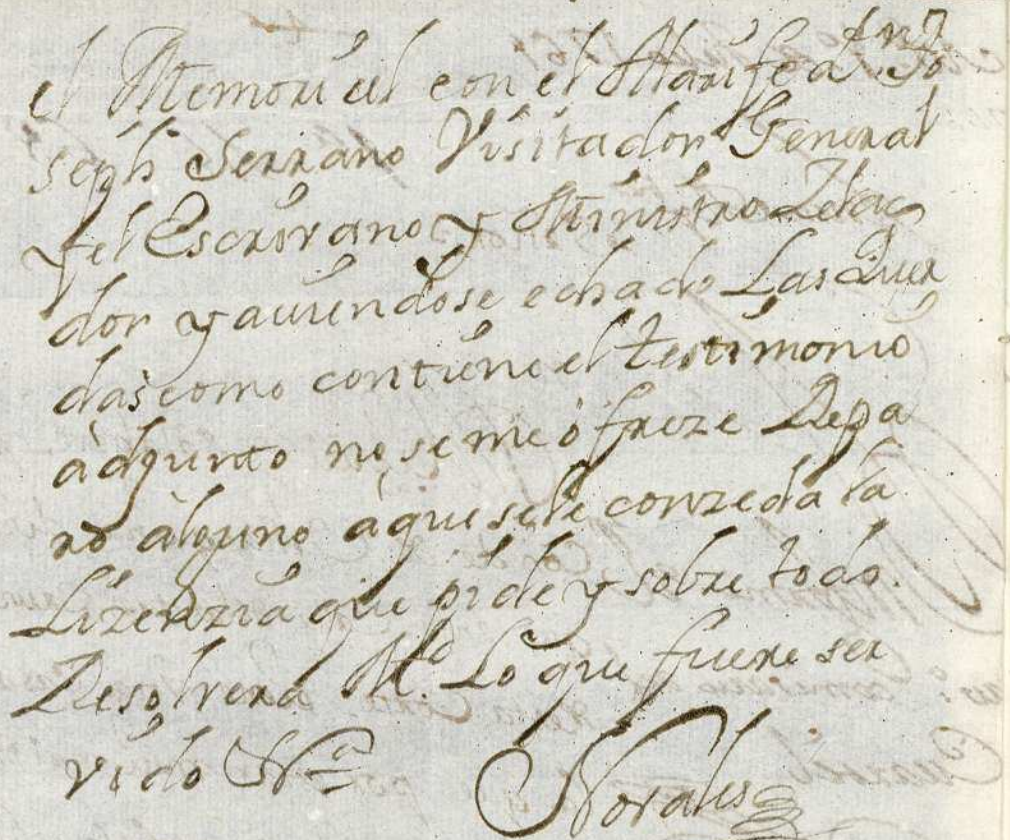 el Memorial con el Alarife dn Jo
seph Serrano Visitador General
y el Escrivano y Ministro Zela
dor y aviendose echado Las Quer
das como contiene el testimonio
adjunto no se me ofreze Repa
ro alguno a que se le conzeda la
Lizenzia que pide y sobre todo
Resolvera M.d Lo que fuere ser
vido